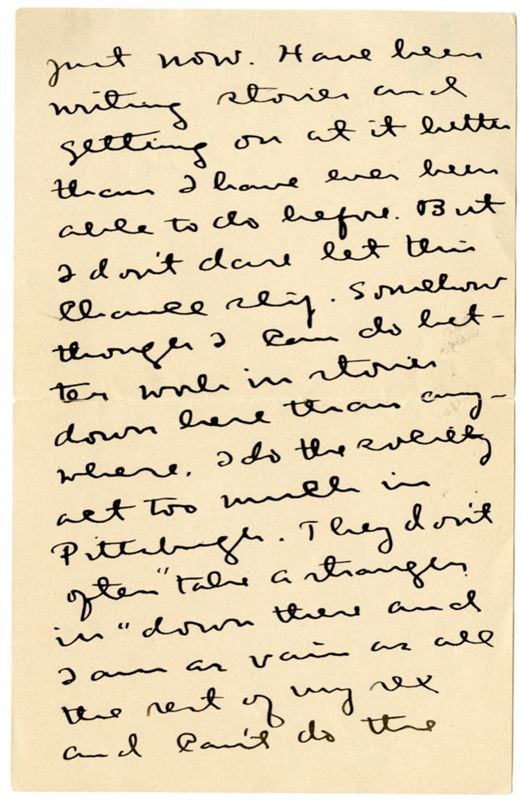 just now. Have been
writing stories and
getting on at it better
than I have ever been
able to do before. But
I don't dare let this
chance slip. Somehow
though I can do bet-
ter work in stories
down here than any-
where. I do the society
act too much in
Pittsburgh. They don't
often "take a stranger
in" down there and
I am as vain as all
the rest of my sex
and can't do the